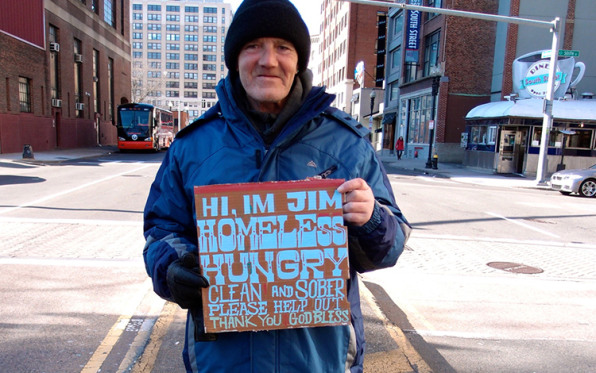 HI, IM JIM
HOMELESS
HUNGRY
CLEAN AND SOBER
PLEASE HELP OUT
THANK YOU GOD BLESS
SOUTH STREET
DINER